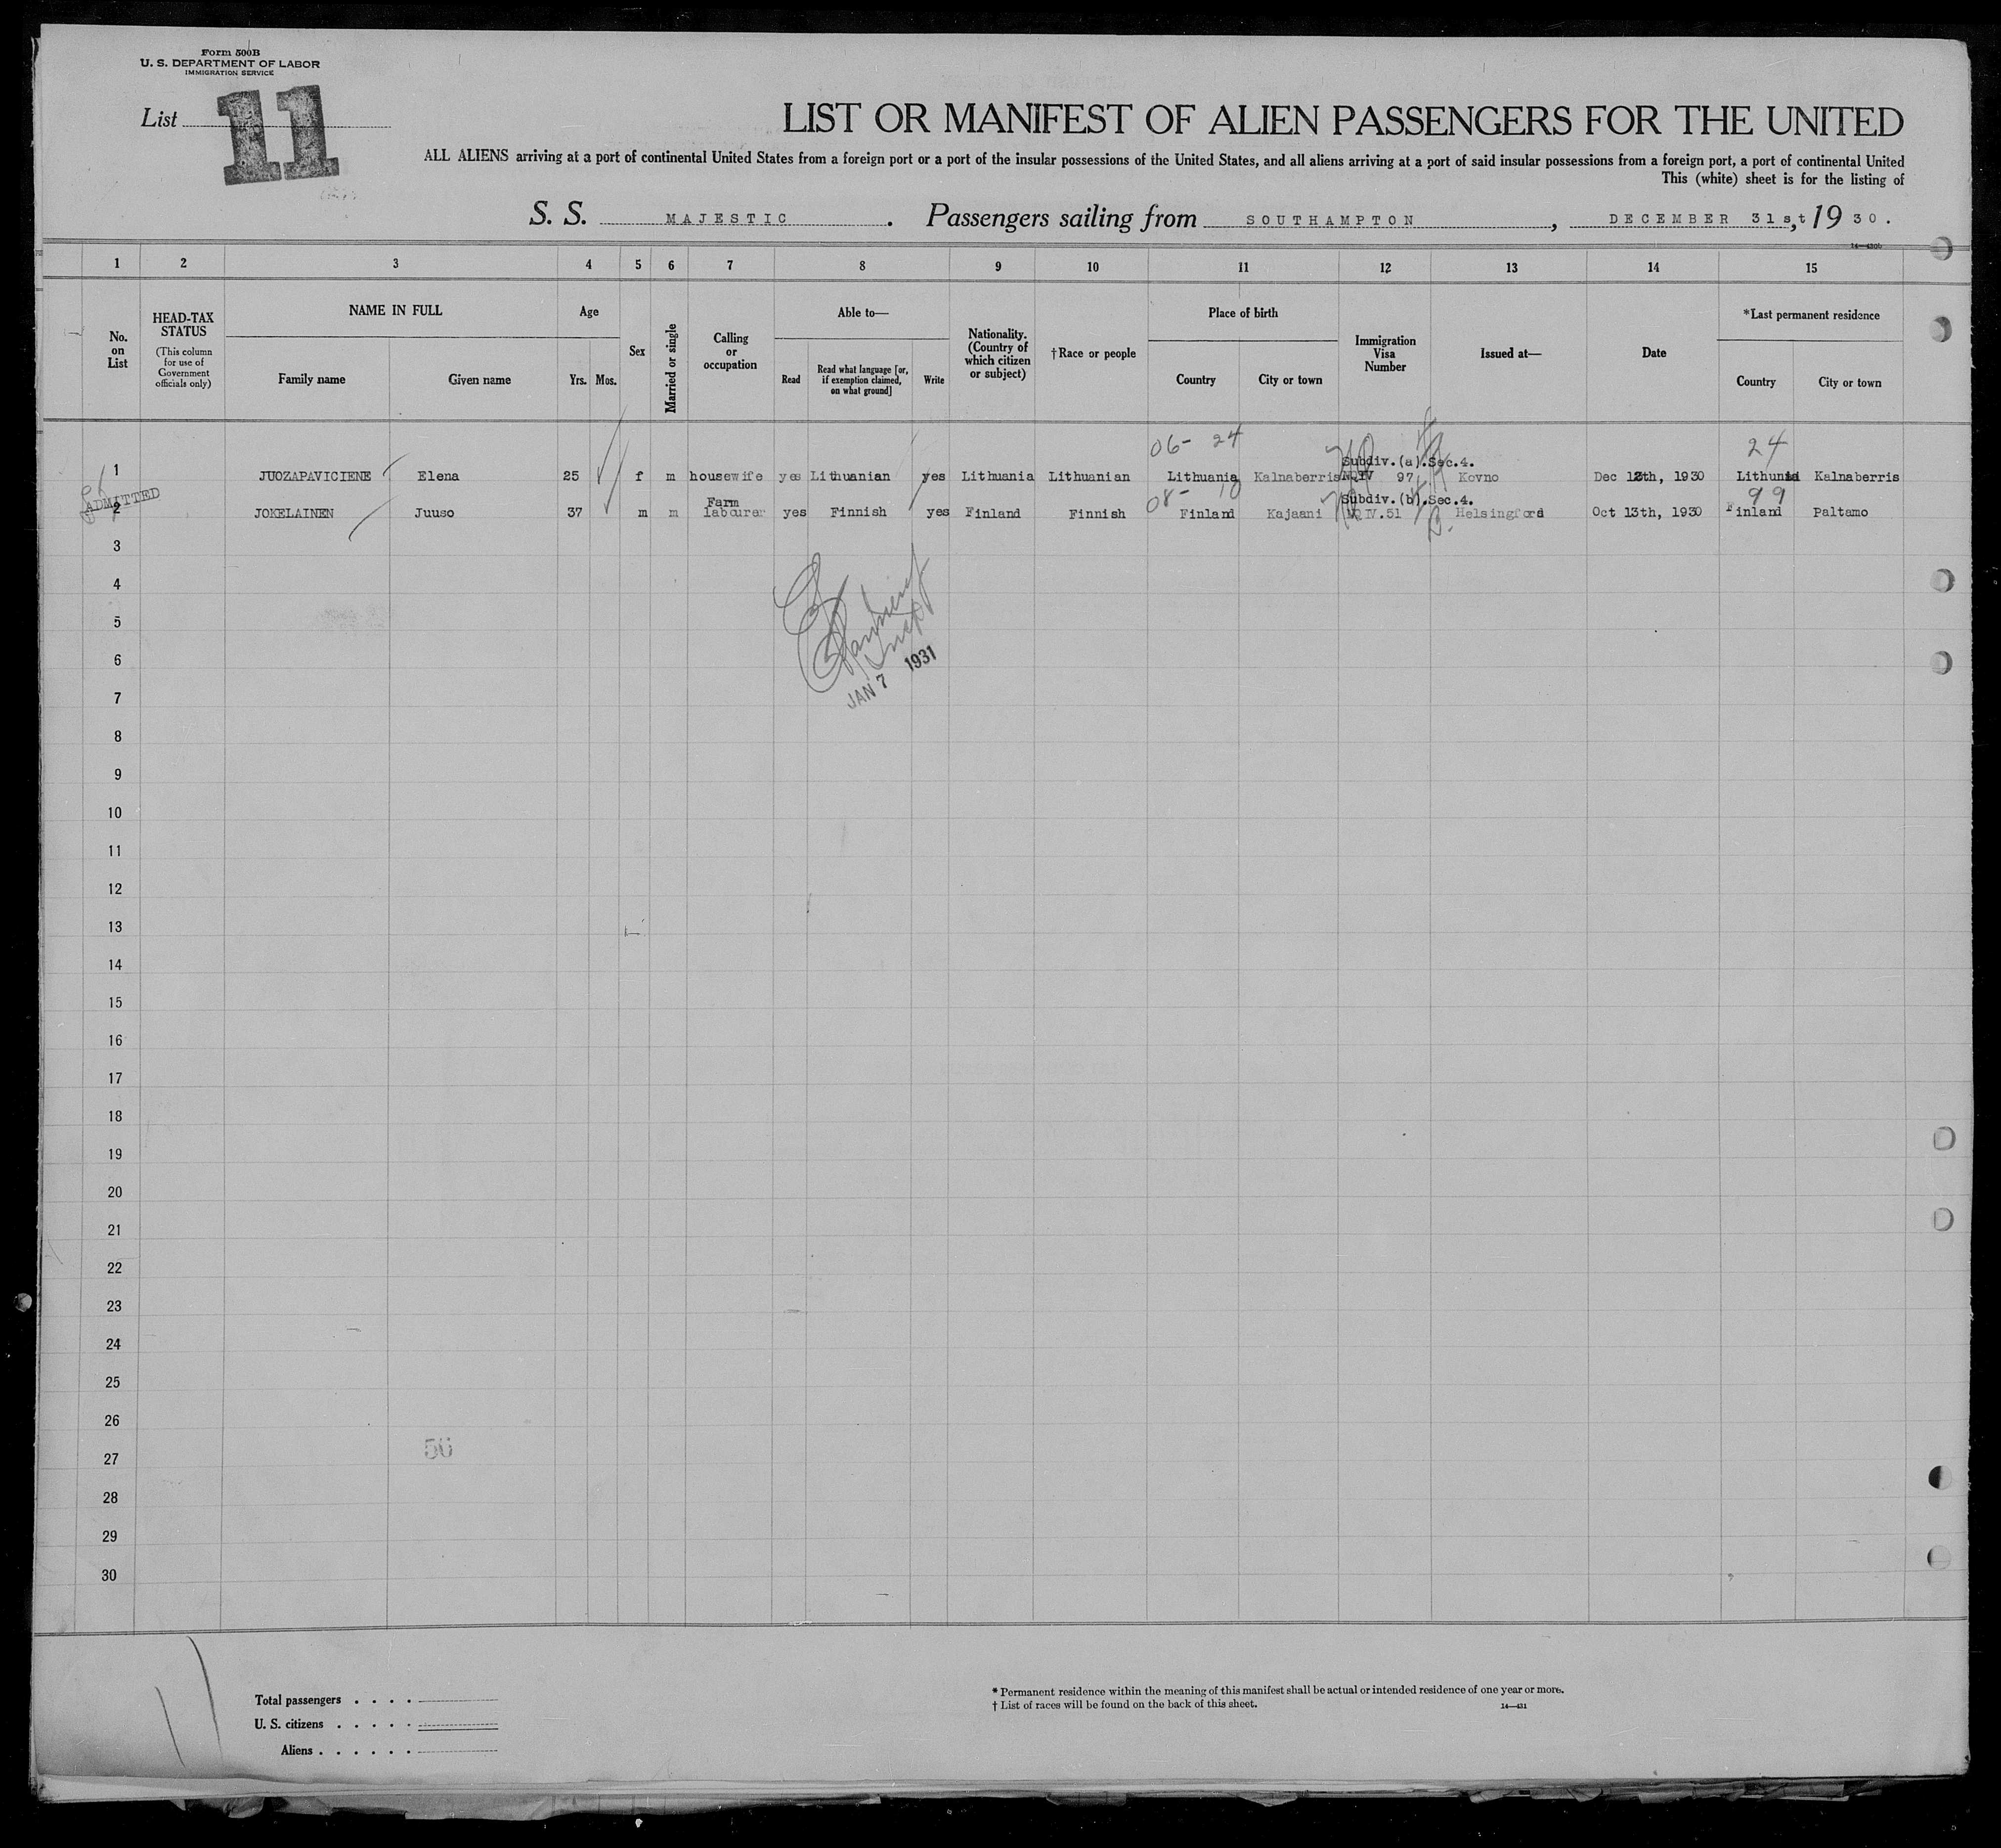 Form 500B
U. S. DEPARTMENT OF LABOR
IMMIGRATION SERVICE
List 11
LIST OR MANIFEST OF ALIEN PASSENGERS FOR THE UNITED
ALL ALIENS arriving at a port of continental United States from a foreign port or a port of the insular possessions of the United States, and all aliens arriving at a port of said insular possessions from a foreign port, a port of continental United
This (white) sheet is for the listing of
S. S. MAJESTIC. Passengers sailing from SOUTHAMPTON, DECEMBER 31st, 1930.
14—430b
1 2 3 4 5 6 7 8 9 10 11 12 13 14 15
No. on List
HEAD-TAX STATUS
(This column for use of Government officials only)
NAME IN FULL
Family name Given name
Age
Yrs. Mos.
Sex
Married or single
Calling or occupation
Able to—
Read
Read what language [or, if exemption claimed, on what ground]
Write
Nationality. (Country of which citizen or subject)
†Race or people
Place of birth
Country City or town
Immigration Visa Number
Issued at—
Date
*Last permanent residence
Country City or town
06- 24 24
Subdiv.(a).Sec.4.
1 JUOZAPAVICIENE Elena 25 f m housewife yes Lithuanian yes Lithuania Lithuanian Lithuania Kalnaberris 97 Kovno Dec 12th, 1930 Lithunia Kalnaberris
ADMITTED
08- 10 99
Farm Subdiv.(b).Sec.4.
2 JOKELAINEN Juuso 37 m m labourer yes Finnish yes Finland Finnish Finland Kajaani NQIV.51 Helsingfors Oct 13th, 1930 Finland Paltamo
3
4
5
6
JAN 7 1931
7
8
9
10
11
12
13
14
15
16
17
18
19
20
21
22
23
24
25
26
50
27
28
29
30
Total passengers . . . .
U. S. citizens . . . . .
Aliens . . . . . .
* Permanent residence within the meaning of this manifest shall be actual or intended residence of one year or more.
† List of races will be found on the back of this sheet.
14—431